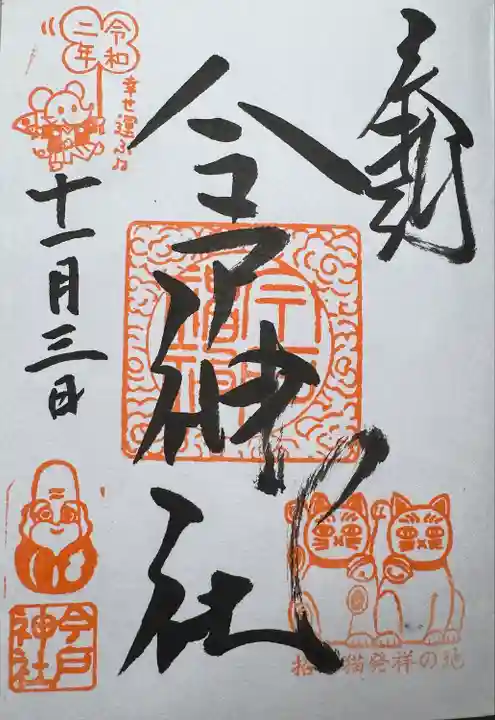 奉拝
今戸神社
令和
二年
幸せ運ぶね
十一月三日
今戸
神社
招き猫発祥の地